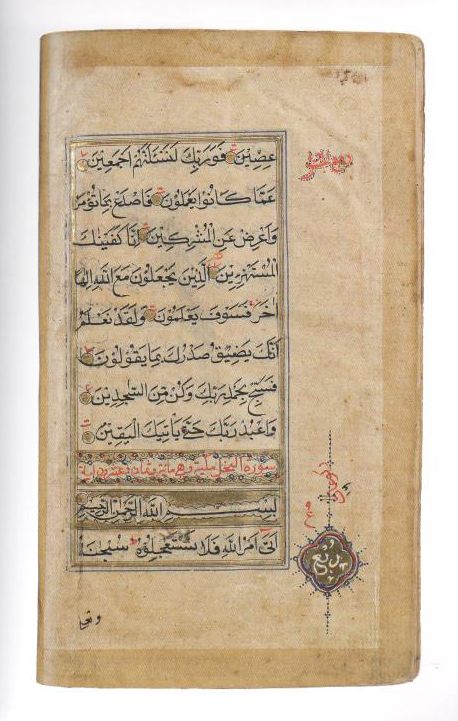 عِضِيْنَ فَوَرَبِّكَ لَنَسْئَلَنَّهُمْ اَجْمَعِيْنَ
عَمَّا كَانُوْا يَعْمَلُوْنَ فَاصْدَعْ بِمَا تُؤْمَرُ
وَاَعْرِضْ عَنِ الْمُشْرِكِيْنَ اِنَّا كَفَيْنٰكَ
الْمُسْتَهْزِءِيْنَ الَّذِيْنَ يَجْعَلُوْنَ مَعَ اللّٰهِ اِلٰهًا
اٰخَرَ فَسَوْفَ يَعْلَمُوْنَ وَلَقَدْ نَعْلَمُ
اَنَّكَ يَضِيْقُ صَدْرُكَ بِمَا يَقُوْلُوْنَ
فَسَبِّحْ بِحَمْدِ رَبِّكَ وَكُنْ مِنَ السّٰجِدِيْنَ
وَاعْبُدْ رَبَّكَ حَتّٰى يَاْتِيَكَ الْيَقِيْنُ
سورة النحل مكية وهي مائة وثمان وعشرون اية
بِسْمِ اللّٰهِ الرَّحْمٰنِ الرَّحِيْمِ
اَتٰى اَمْرُ اللّٰهِ فَلَا تَسْتَعْجِلُوْهُ سُبْحٰنَهُ
ربع